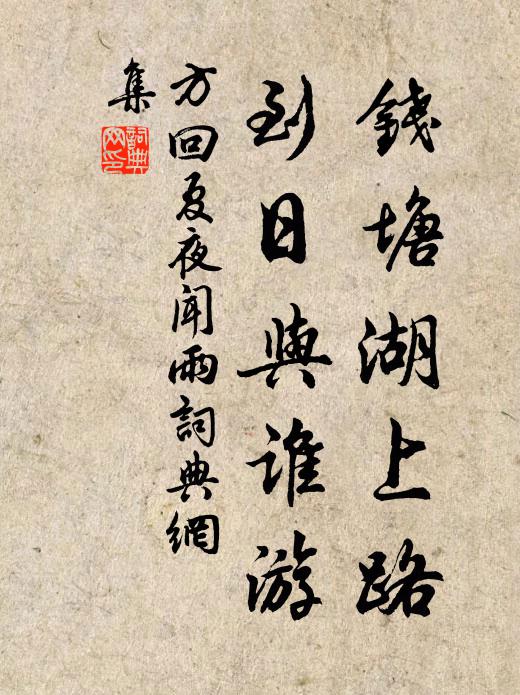 錢塘湖上路
到日與誰游
方回夏夜聞雨詞典網
集
詞典網印